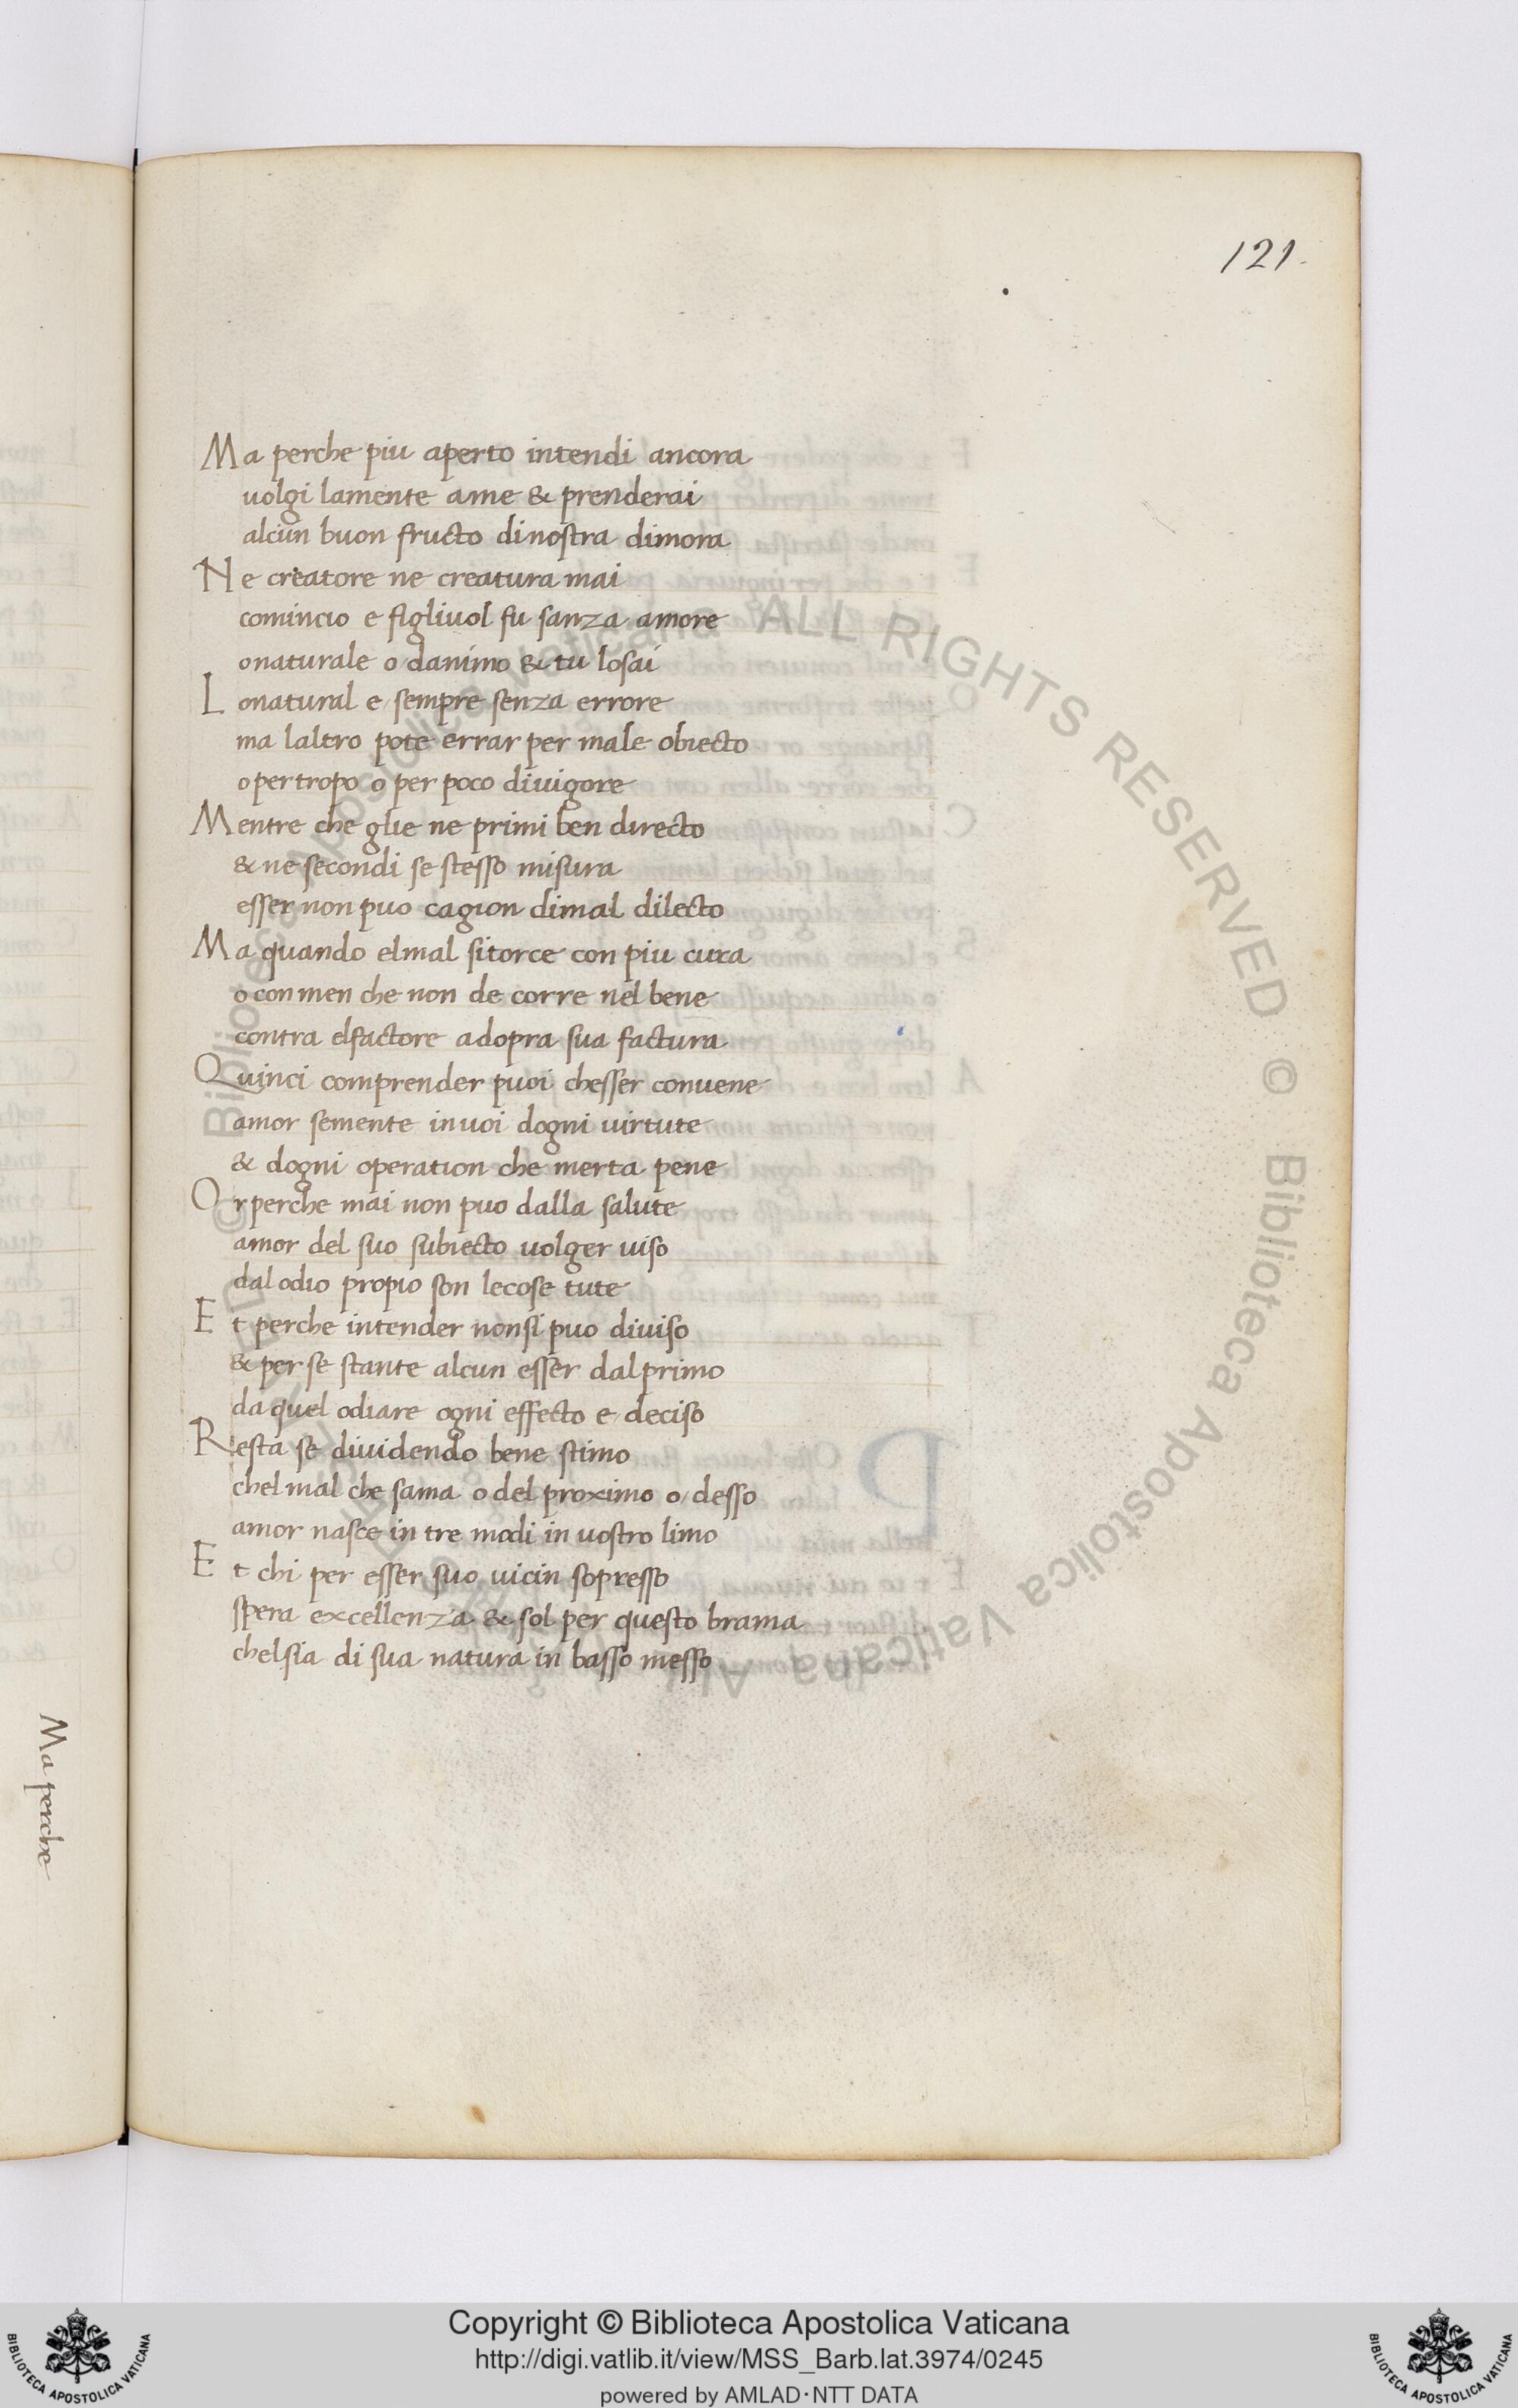 121.
Ma perche piu aperto intendi ancora
uolgi lamente ame & prenderai
alcun buon fructo dinostra dimora
Ne creatore ne creatura mai
comincio e figliuol fu sanza amore
onaturale o danimo & tu losai
Lonatural e sempre senza errore
ma laltro pote errar per male obiecto
o pertropo o per poco diuigore
Mentre che glie ne primi ben directo
& ne secondi se stesso misura
esser non puo cagion dimal dilecto
Ma quando elmal sitorce con piu cura
o con men che non de corre nel bene
contra elfactore adopra sua factura
Quinci comprender puoi chesser conuene
amor semente inuoi dogni uirtute
& dogni operation che merta pene
Or perche mai non puo dalla salute
amor del suo subiecto uolger uiso
dal odio propio son lecose tute
Et perche intender nonsi puo diuiso
& per se stante alcun esser dalprimo
da quel odiare ogni effecto e deciso
Resta se diuidendo bene stimo
chel mal che sama o del proximo o desso
amor nasce in tre modi in uostro limo
Et chi per esser suo uicin sopresso
spera excellenza & sol per questo brama
chelsia di sua natura in basso messo
Ma perche
Biblioteca Apostolica Vaticana ALL RIGHTS RESERVED © Biblioteca Apostolica Vaticana ALL RIGHTS RESERVED ©
Copyright © Biblioteca Apostolica Vaticana
http://digi.vatlib.it/view/MSS_Barb.lat.3974/0245
powered by AMLAD·NTT DATA
BIBLIOTECA APOSTOLICA VATICANA
BIBLIOTECA APOSTOLICA VATICANA